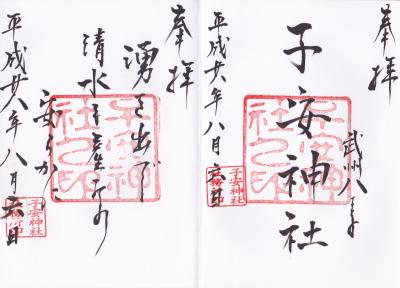 奉拝
武州八王子
子安神社
平成廿八年八月六日
子安神社
奉拝
湧き出づ
清水も産み
安らかに
平成廿八年八月六日
子安神社
子安神社之印